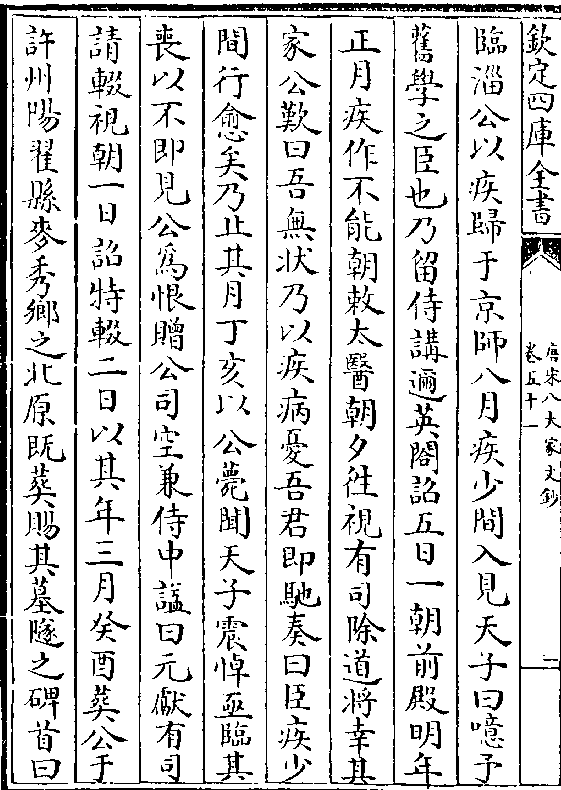 欽定四庫全書
唐宋八大家文鈔
卷五十一
二
臨淄公以疾歸于京師八月疾少間入見天子曰噫予
舊學之臣也乃留侍講邇英閣詔五日一朝前殿明年
正月疾作不能朝敕太醫朝夕徃視有司除道將幸其
家公歎曰吾無狀乃以疾病憂吾君即馳奏曰臣疾少
間行愈矣乃止其月丁亥以公薨聞天子震悼亟臨其
喪以不即見公爲恨贈公司空兼侍中諡曰元獻有司
請輟視朝一日詔特輟二日以其年三月癸酉葬公于
許州陽翟縣麥秀鄉之北原既葬賜其墓隧之碑首曰